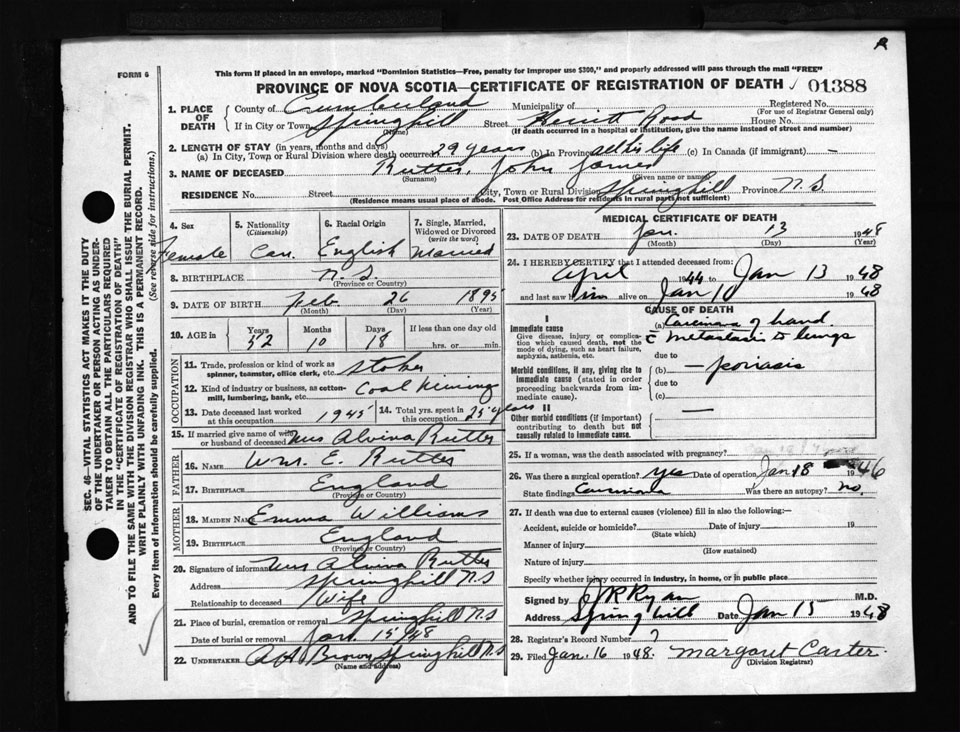 R
FORM 6
This form if placed in an envelope, marked "Dominion Statistics—Free, penalty for improper use $300," and properly addressed will pass through the mail "FREE"
PROVINCE OF NOVA SCOTIA—CERTIFICATE OF REGISTRATION OF DEATH 01388
SEC. 46—VITAL STATISTICS ACT MAKES IT THE DUTY
OF THE UNDERTAKER OR PERSON ACTING AS UNDER-
TAKER TO OBTAIN ALL THE PARTICULARS REQUIRED
IN THE "CERTIFICATE OF REGISTRATION OF DEATH"
AND TO FILE THE SAME WITH THE DIVISION REGISTRAR WHO SHALL ISSUE THE BURIAL PERMIT.
WRITE PLAINLY WITH UNFADING INK. THIS IS A PERMANENT RECORD.
Every item of information should be carefully supplied. (See reverse side for instructions.)
1. PLACE OF DEATH
County of Cumberland Municipality of Registered No.
(For use of Registrar General only)
If in City or Town Springhill Street Herritt Road House No.
(Name) (If death occurred in a hospital or institution, give the name instead of street and number)
2. LENGTH OF STAY (in years, months and days)
(a) In City, Town or Rural Division where death occurred 29 years (b) In Province all his life (c) In Canada (if immigrant) —
3. NAME OF DECEASED Rutter, John James
(Surname) (Given name or names)
RESIDENCE No. Street City, Town or Rural Division Springhill Province N.S
(Residence means usual place of abode. Post Office Address for residents in rural parts not sufficient)
4. Sex Female
5. Nationality (Citizenship) Can.
6. Racial Origin English
7. Single, Married, Widowed or Divorced (write the word) Married
8. BIRTHPLACE N.S.
(Province or Country)
9. DATE OF BIRTH Feb 26 1895
(Month) (Day) (Year)
10. AGE in Years 52 Months 10 Days 18 If less than one day old
hrs. or min.
OCCUPATION
11. Trade, profession or kind of work as spinner, teamster, office clerk, etc. Stoker
12. Kind of industry or business, as cotton-mill, lumbering, bank, etc. Coal Mining
13. Date deceased last worked at this occupation 1945 14. Total yrs. spent in this occupation 25 years
15. If married give name of wife or husband of deceased Mrs Alvina Rutter
FATHER
16. NAME Wm. E. Rutter
17. BIRTHPLACE England
(Province or Country)
MOTHER
18. MAIDEN NAME Emma Williams
19. BIRTHPLACE England
(Province or Country)
20. Signature of informant Mrs Alvina Rutter
Address Springhill N.S
Relationship to deceased Wife
21. Place of burial, cremation or removal Springhill N.S
Date of burial or removal Jan. 15 1948
22. UNDERTAKER A H Brown Springhill N.S
(Name and address)
MEDICAL CERTIFICATE OF DEATH
23. DATE OF DEATH Jan. 13 1948
(Month) (Day) (Year)
24. I HEREBY CERTIFY that I attended deceased from:
April 1944 to Jan 13 1948
and last saw him alive on Jan 10 1948
CAUSE OF DEATH
I
Immediate cause
Give disease, injury or complication which caused death, not the mode of dying, such as heart failure, asphyxia, asthenia, etc.
(a) of hand
c̄ metastasis to lungs
due to
Morbid conditions, if any, giving rise to immediate cause (stated in order proceeding backwards from immediate cause).
(b) — psoriasis
due to
(c)
II
Other morbid conditions (if important) contributing to death but not causally related to immediate cause.
—
25. If a woman, was the death associated with pregnancy?
26. Was there a surgical operation? yes Date of operation Jan 18 1946
State findings Was there an autopsy? no.
27. If death was due to external causes (violence) fill in also the following:—
Accident, suicide or homicide? Date of injury 19
(State which)
Manner of injury
(How sustained)
Nature of injury
Specify whether injury occurred in industry, in home, or in public place
Signed by J R Ryan M.D.
Address Springhill Date Jan 15 1948
28. Registrar's Record Number 7
29. Filed Jan. 16 1948. Margaret Carter.
(Division Registrar)